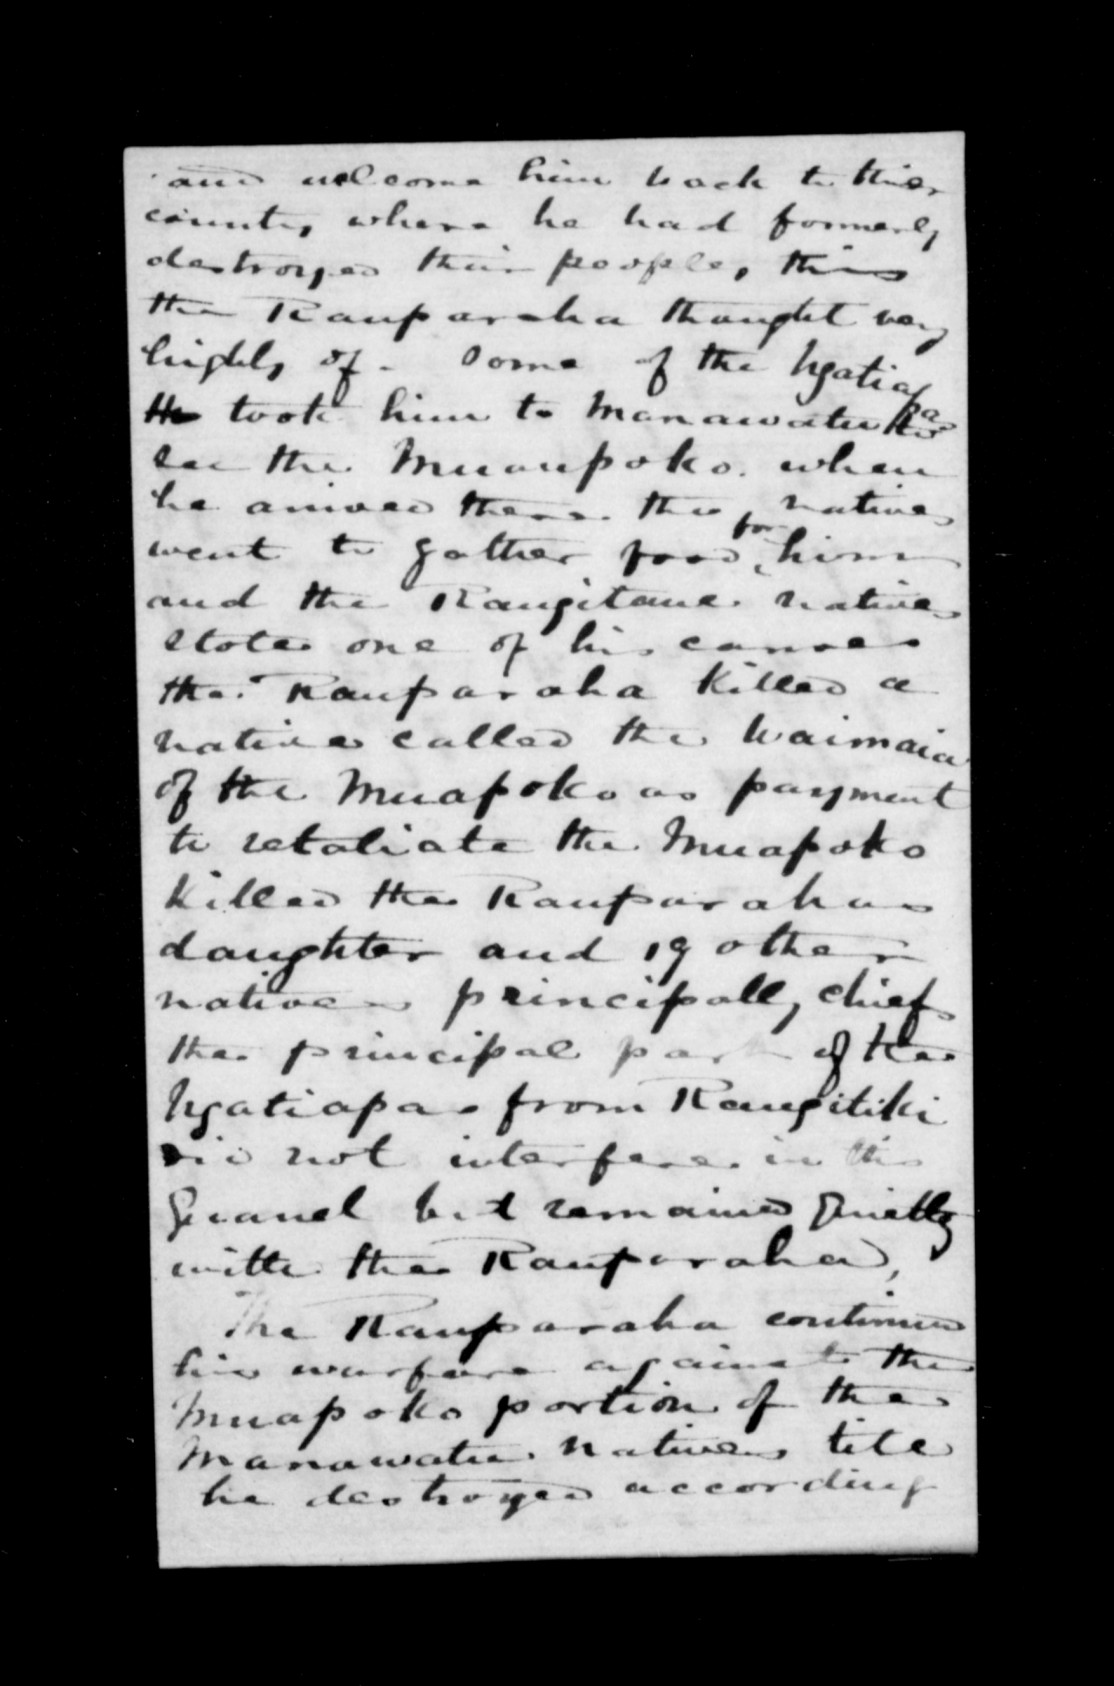 and welcome him back to thier
country where he had formerly
destroyed their people, this
the Rauparaha thought very
highly of. Some of the Ngatiapa
took him to Manawatu to
see the Muaupoko. when
he arrived there the natives
went to gather food for him
and the Rangitane natives
stole one of his canoes
the Rauparaha killed a
native called the Waimaia
of the Muapoko as payment
to retaliate the Muapoko
killed the Rauparahas
daughter and 19 other
natives principally chiefs
the principal part of the
Ngatiapas from Rangitiki
did not interfere in this
Quarrel but remained Quietly
with the Rauparaha,
The Rauparaha continued
his warfare against the
Muapoko portion of the
Manawatu Natives till
he destroyed according